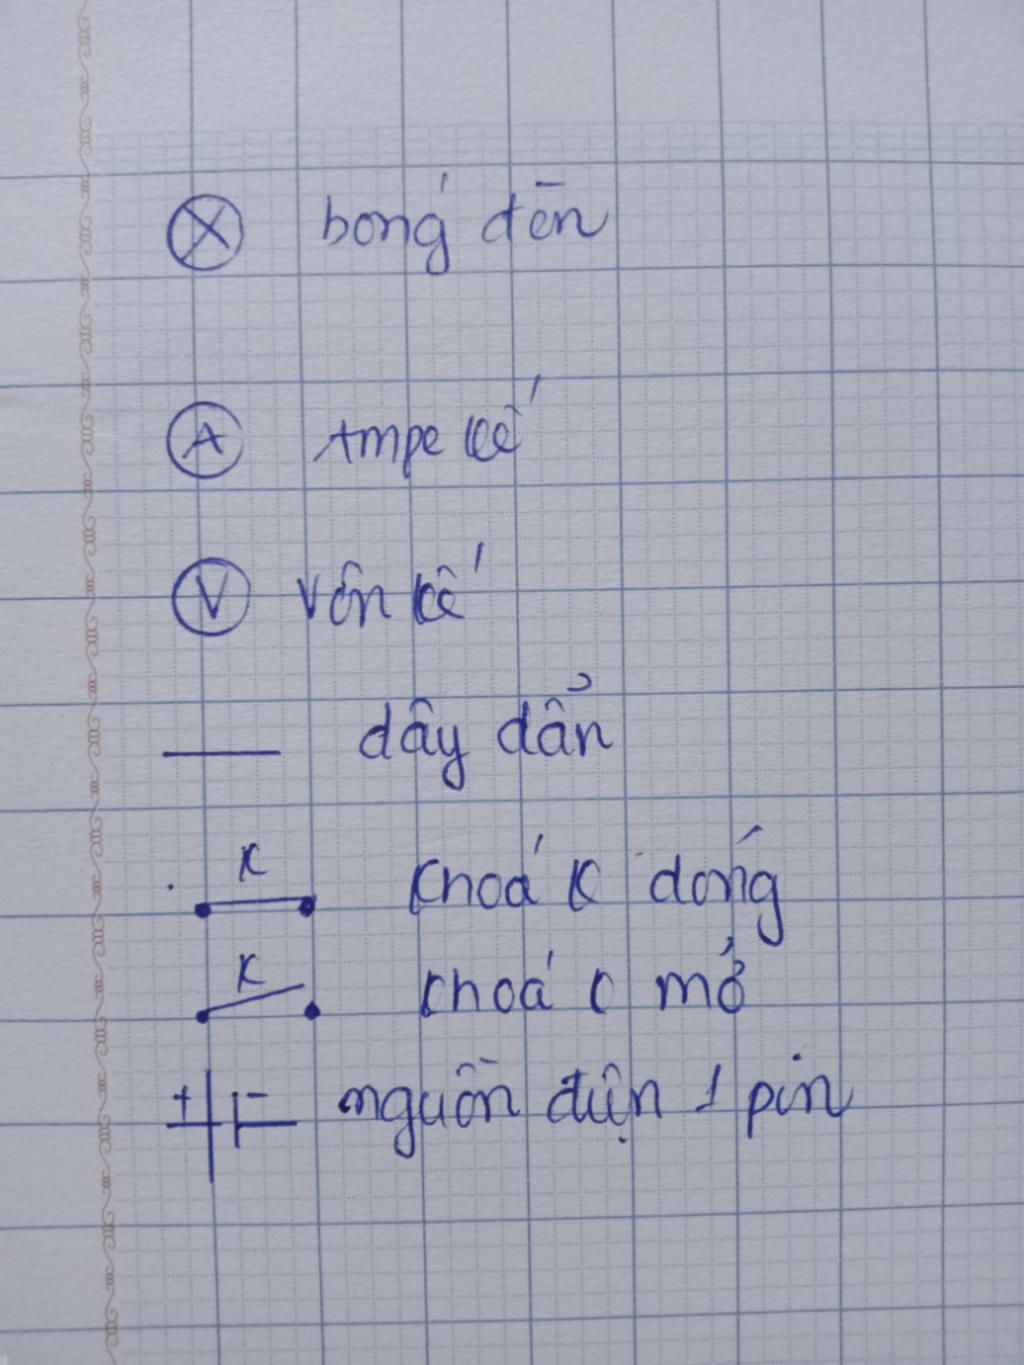 bóng đèn
A Ampe kế
V Vôn kế
dây dẩn
K
khoá K đóng
K
khoá K mở
+ - nguồn điện 1 pin